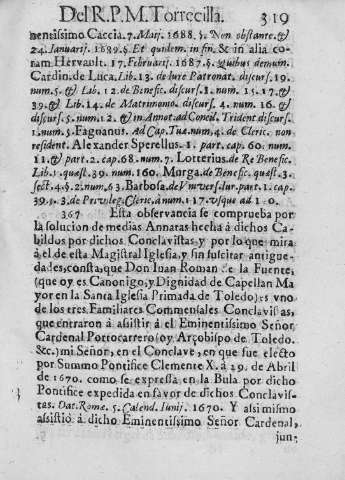 Del R. P. M. Torrecilla. 319
nentissimo Caccia. 7. Maij. 1688. §. Non obstante. &
24. Ianuarij. 1689. §. Et quidem. in fin. & in alia co-
ram Hervault. 17. Februarij. 1687. §. Quibus demum.
Cardin. de Luca, Lib. 13. de Iure Patronat. discurs. 19.
num. 5. & Lib. 12. de Benefic. discurs. 1. num. 15. 17. &
39. & Lib. 14. de Matrimonio. discurs. 4. num. 16. &
discurs. 5. num. 12. & in Annot. ad Concil. Trident. discurs.
1. num. 5. Fagnanus. Ad Cap. Tuæ. num. 4. de Cleric. non
resident. Alexander Sperellus. 1. part. cap. 60. num.
11. & part. 2. cap. 68. num. 7. Lotterius. de Re Benefic.
Lib. 1. quæst. 39. num. 160. Murga. de Benefic. quæst. 3.
sect. 4. §. 2. num. 63. Barbosa. de Vniversi. Iur. part. 1. cap.
39. §. 3. de Privileg. Cleric. à num. 117. vsque ad 1 0.
367 Esta observancia se comprueba por
la solucion de medias Annatas hecha à dichos Ca-
bildos por dichos Conclavistas y por lo que mira
à el de esta Magistral Iglesia, y sin suscitar antigue-
dades, consta, que Don Iuan Roman de la Fuente,
(que oy es Canonigo, y Dignidad de Capellan Ma
yor en la Santa Iglesia Primada de Toledo) es vno
de los tres Familiares Commensales Conclavistas,
que entraron à asistir à el Eminentissimo Señor
Cardenal Portocarrero (oy Arçobispo de Toledo.
&c.) mi Señor, en el Conclave, en que fue electo
por Summo Pontifice Clemente X. à 29. de Abril
de 1670. como se expressa en la Bula por dicho
Pontifice expedida en favor de dichos Conclavis-
tas. Dat. Romæ. 5. Calend. Iunij. 1670. Y assi mismo
assistiò à dicho Eminentissimo Señor Cardenal,
jun-